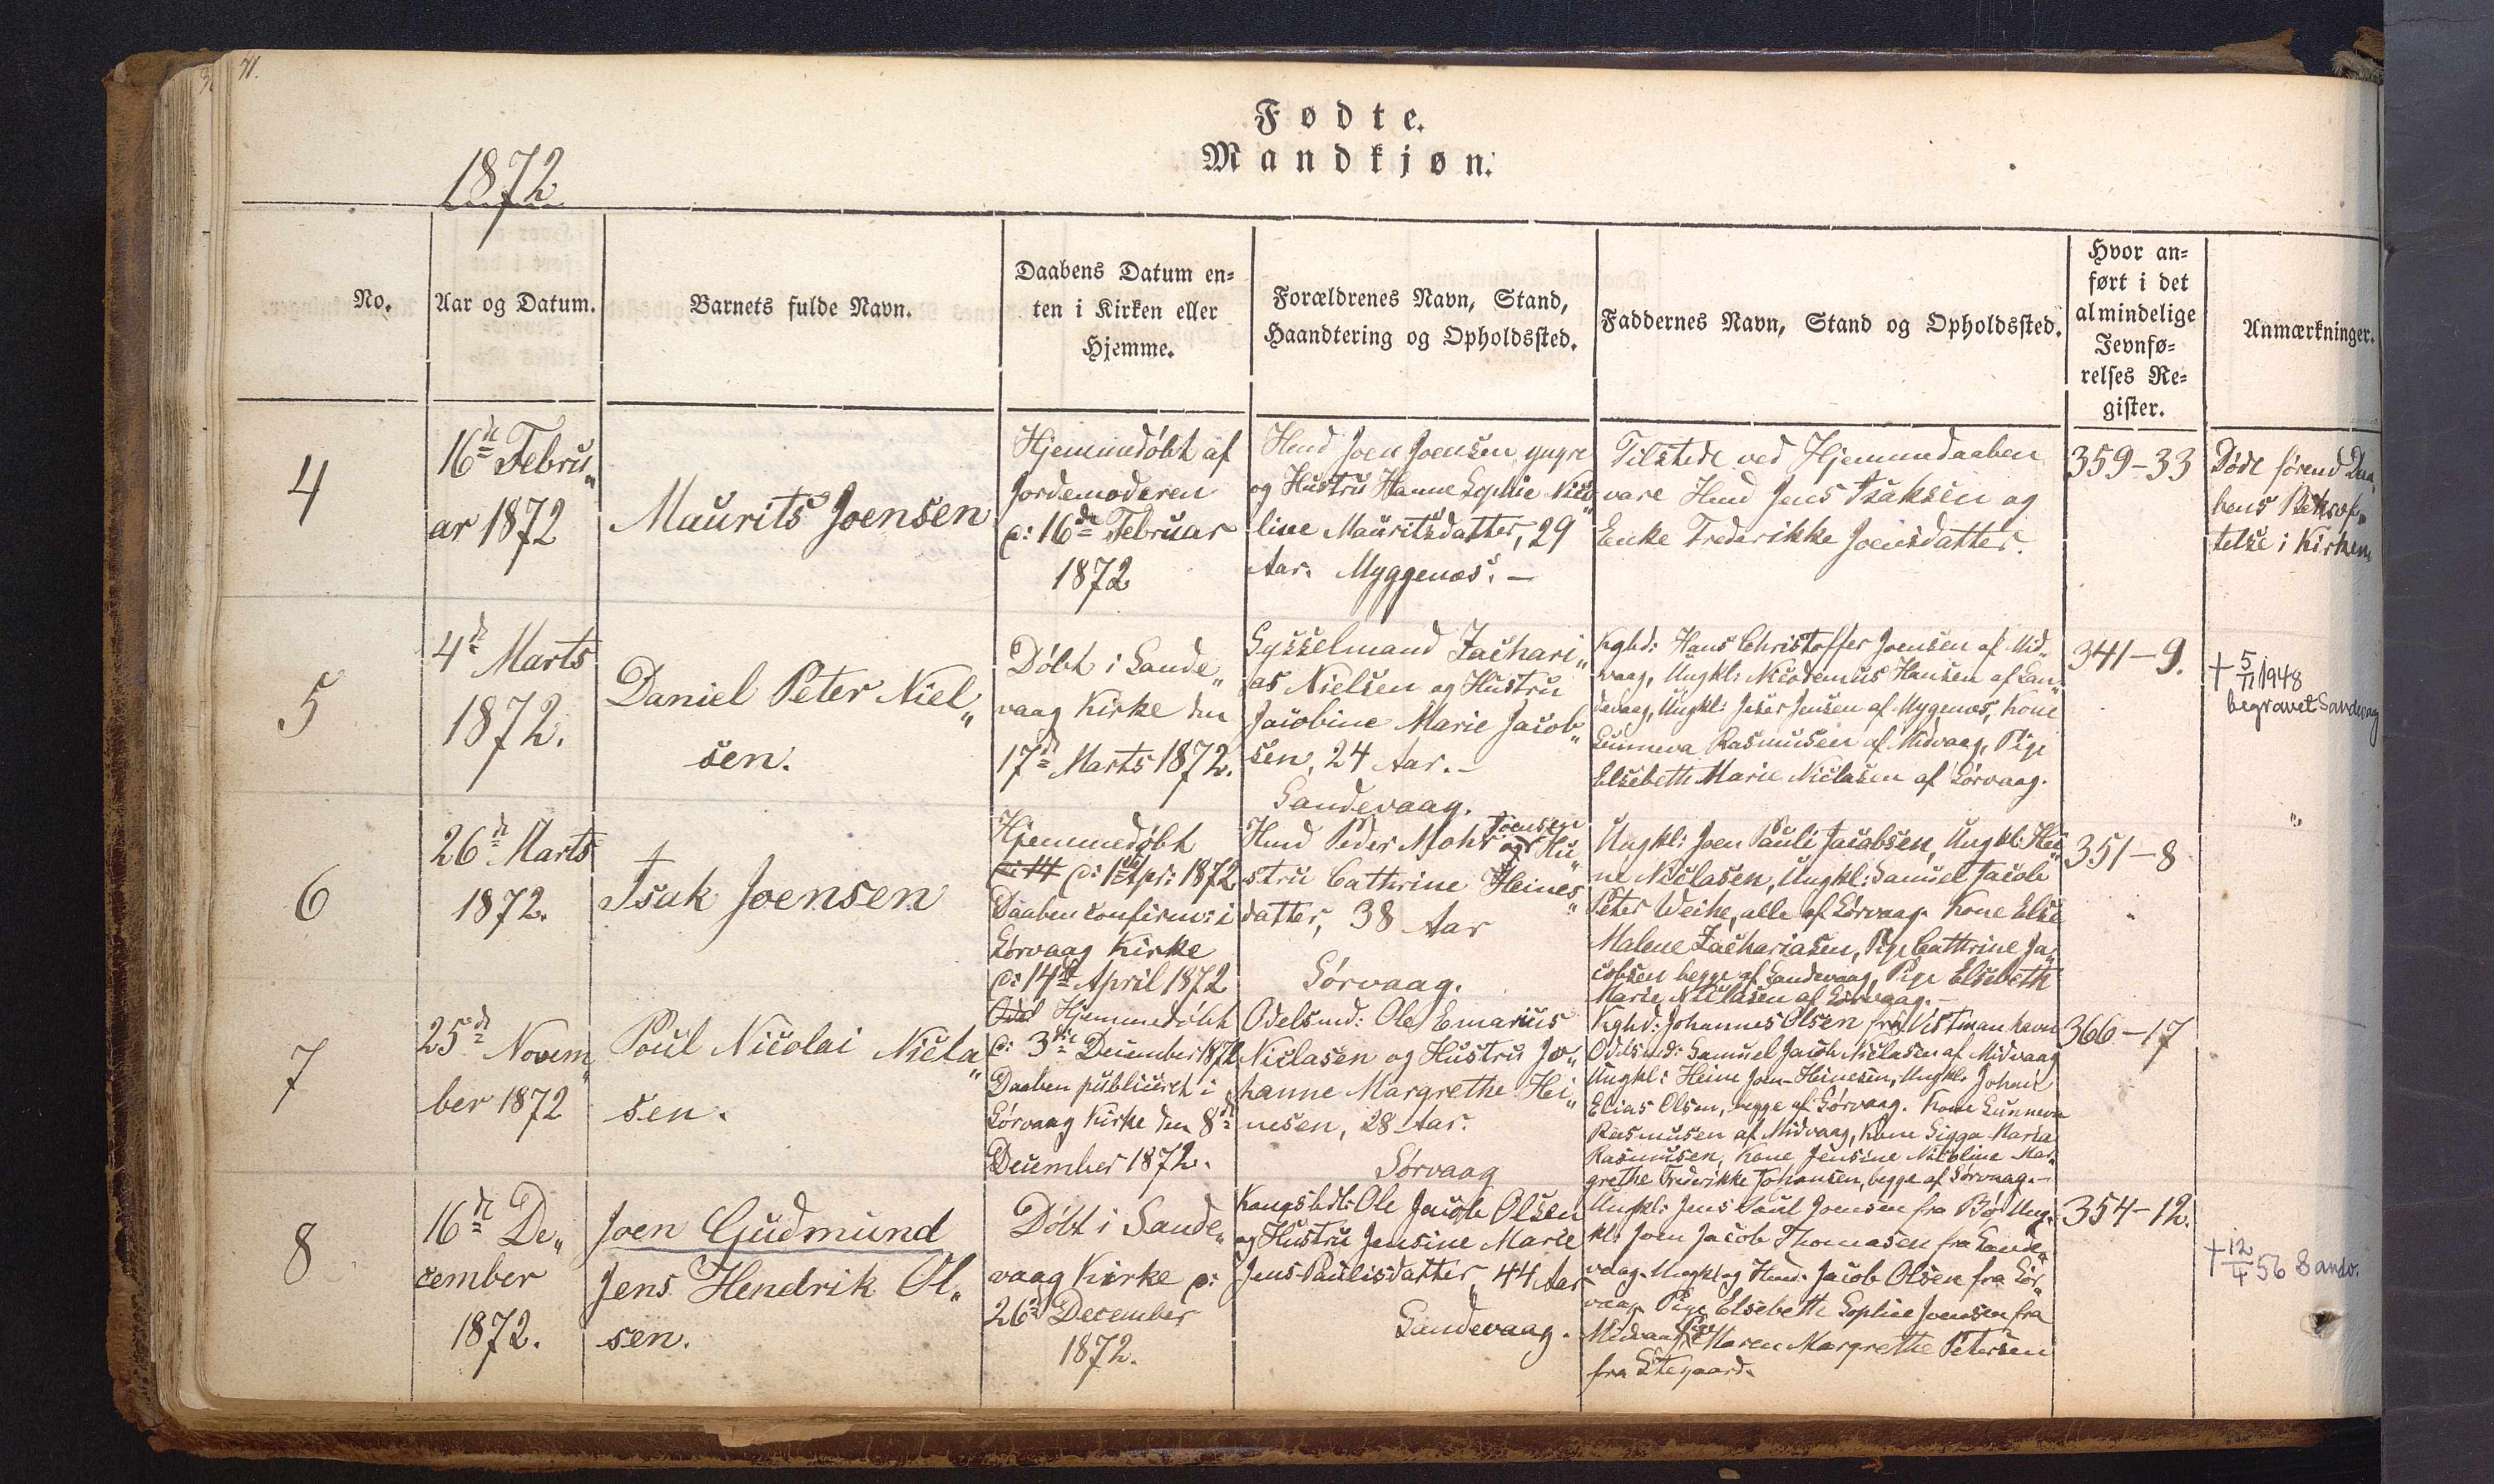 71.
Fødte.
Mandkjøn.
1872
No.
Aar og Datum.
Barnets fulde Navn.
Daabens Datum en=
ten i Kirken eller
Hjemme.
Forældrenes Navn, Stand,
Haandtering og Opholdssted.
Faddernes Navn, Stand og Opholdssted.
Hvor an=
ført i det
almindelige
Jevnfø=
relses Re=
gister.
Anmærkninger.
4
16de Febru„
ar 1872
Maurits Joensen
Hjemmedøbt af
Jordemoderen
d: 16de Februar
1872
Hmd Joen Joensen yngre
og Hustru Hanne Sophie Nico„
line Mauritsdatter, 29
Aar. Myggenæs. –
Tilstede ved Hjemmedaaben
vare Hmd Jens Isaksen og
Enke Frederikke Joensdatter.
359-33
Døde førend Daa„
bens Bekræf„
telse i Kirken
5
4de Marts
1872.
Daniel Peter Niel„
sen.
Døbt i Sande„
vaag Kirke den
17de Marts 1872.
Sysselmand Zachari„
as Nielsen og Hustru
Jacobine Marie Jacob„
sen, 24 Aar. –
Sandevaag.
Kghd: Hans Christoffer Joensen af Mid„
vaag, Ungkl: Nicodemus Hansen af San„
devaag, Ungkl: Jensen af Mygenæs, Kone
Sunneva Rasmusen af Midvaag, Pige
Elsebeth Marie Niclasen af Sørvaag.
341-9.
† 5/11 1948
begravet Sandevag
6
26de Marts
1872.
Isak Joensen
Hjemmedøbt
d: 14 d: 1ste Apr: 1872
Daaben confirm: i
Sørvaag Kirke
d: 14de April 1872
Hmd Peder Mohr Joensen og Hu„
stru Cathrine Heines„
datter, 38 Aar
Sørvaag.
Ungkl: Joen Pauli Jacobsen, Ungkl: Hei„
ne Niclasen, Ungkl: Samuel Jacob
Peter Weihe, alle af Sørvaag. Kone Else
Malene Zachariasen, Pige Cathrine Ja„
cobsen begge af Sandevaag, Pige Elsebeth
Marie Niclasen af Sørvaag. –
351-8
7
25de Novem„
ber 1872
Poul Nicolai Nicla„
sen.
Hjemmedøbt
d: 3die December 1872
Daaben publiceret i
Sørvaag Kirke den 8de
December 1872.
Odelsmd: Ole Emarius
Niclasen og Hustru Jo„
hanne Margrethe Hei„
nesen, 28 Aar.
Sørvaag
Kghd: Johannes Olsen fra Vestmanhavn
Odelsmd: Samuel Jacob Niclasen af Midvaag
Ungkl: Heine Joen-Heinesen, Ungkl: Johan
Elias Olsen, begge af Sørvaag. Kone Sunneva
Rasmusen af Midvaag, Kone Sigga Maria
Rasmusen, Kone Jensine Nicoline Mar„
grethe Frederikke Johansen, begge af Sørvaag. –
366-17
8
16de De„
cember
1872.
Joen Gudmund
Jens Hendrik Ol„
sen.
Døbt i Sande„
vaag Kirke d:
26de December
1872.
Ole Jacob Olsen
og Hustru Jensine Marie
Jens-Paulisdatter, 44 Aar
Sandevaag.
Ungkl: Jens Paul Joensen fra Bø, Ung„
kl: Joen Jacob Thomasen fra Sande„
vaag. Ungkl og Hmd: Jacob Olsen fra Sør„
vaag. Pige Elsebeth Sophie Joensen fra
Midvaag, Pige Maren Margrethe Petersen
fra Stegaard.
354-12.
† 12/4 56 Sandv.